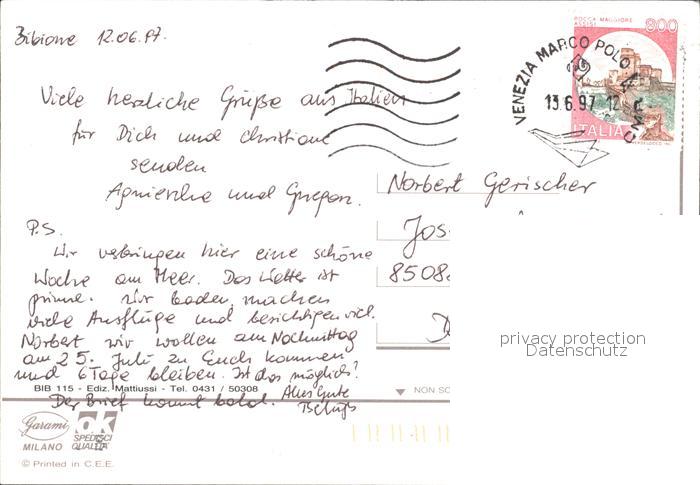 Bibione 12.06.97.
Viele herzliche Grüße aus Italien
für Dich und Christiane
senden
Agnieszka und Gregor.
P.S.
Wir verbringen hier eine schöne
Woche am Meer. Das Wetter ist
prima. Wir baden, machen
viele Ausflüge und besichtigen viel.
Norbert wir wollen am Nachmittag
am 25. Juli zu Euch kommen
und 6 Tage bleiben. Ist das möglich?
Der Brief kommt bald. Alles Gute
Tschüß
BIB 115 - Ediz. Mattiussi - Tel. 0431 / 50308
Garami
MILANO
ok
SPEDISCI
QUALITÀ
© Printed in C.E.E.
ROCCA MAGGIORE
ASSISI
800
ITALIA
VENEZIA MARCO POLO
13.6.97 12
Norbert Gerischer
Jos
8508
D
NON SC
privacy protection
Datenschutz